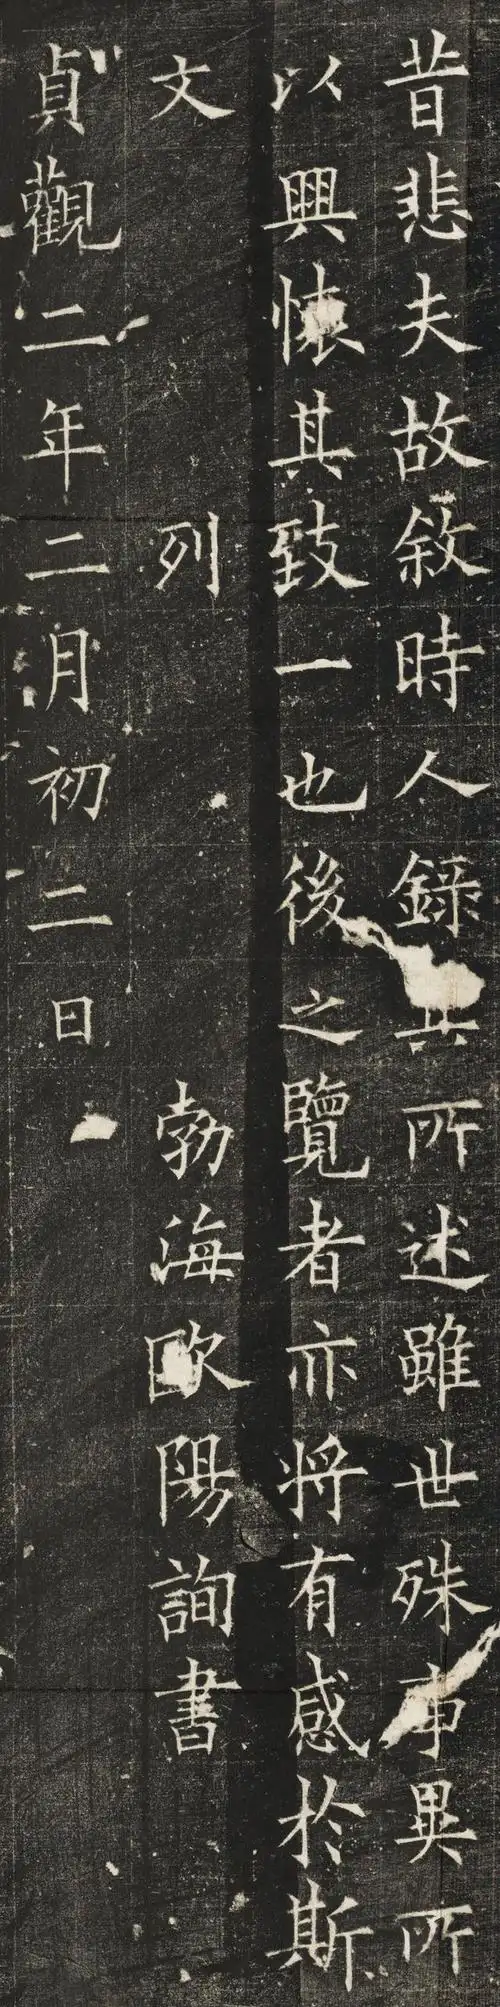 昔悲夫故敘時人錄其所述雖世殊事異所
以興懷其致一也後之覽者亦將有感於斯
文 列 勃海歐陽詢書
貞觀二年二月初二日